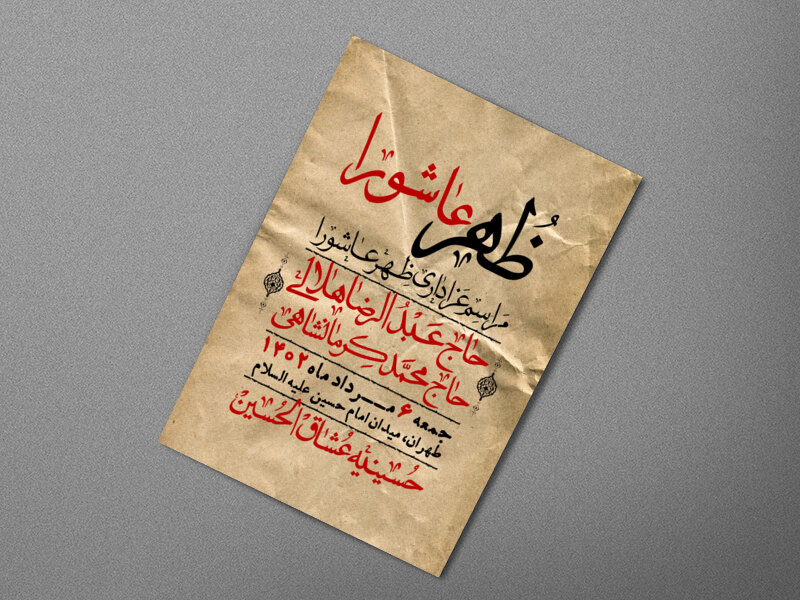 ظُهر عاشورا
مراسم عزاداری ظهر عاشورا
حاج عَبدُ الرضا هلالی
حاج محمّد کِرمانشاهی
جمعه ۶ مرداد ماه ۱۴۰۲
طهران، میدان امام حسین علیه السلام
حُسینیه عُشاق الحُسین